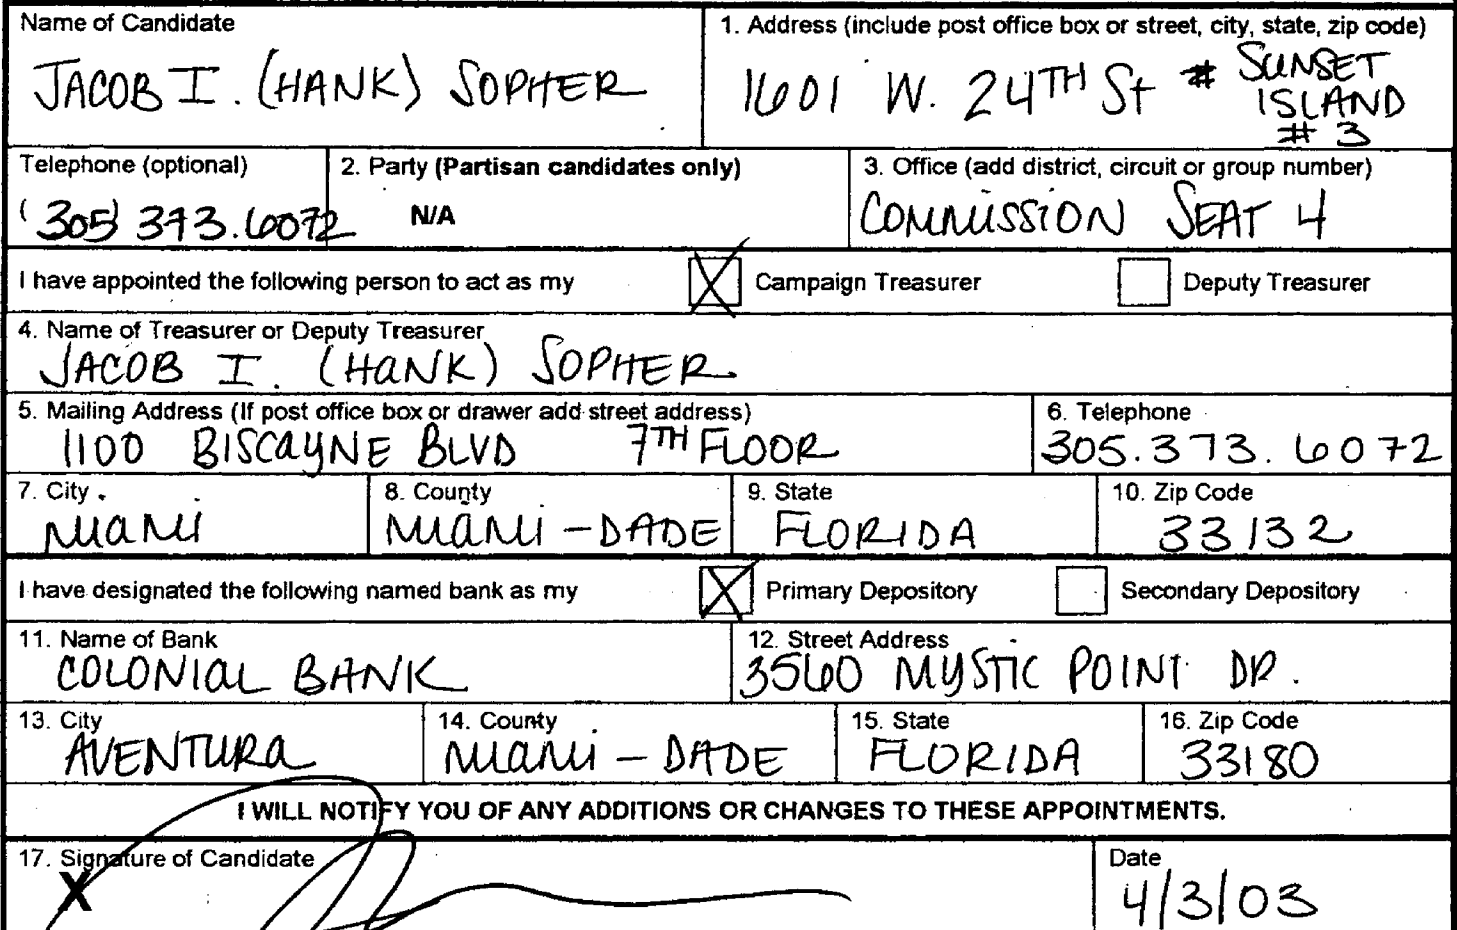 Name of Candidate
JACOB I. (HANK) SOPHER
1. Address (include post office box or street, city, state, zip code)
1601 W. 24TH St # SUNSET
ISLAND
# 3
Telephone (optional)
(305) 373.6072
2. Party (Partisan candidates only)
N/A
3. Office (add district, circuit or group number)
COMMISSION SEAT 4
I have appointed the following person to act as my
X Campaign Treasurer
Deputy Treasurer
4. Name of Treasurer or Deputy Treasurer
JACOB I. (HANK) SOPHER
5. Mailing Address (If post office box or drawer add street address)
1100 BISCAYNE BLVD 7TH FLOOR
6. Telephone
305.373.6072
7. City
MIAMI
8. County
MIAMI-DADE
9. State
FLORIDA
10. Zip Code
33132
I have designated the following named bank as my
X Primary Depository
Secondary Depository
11. Name of Bank
COLONIAL BANK
12. Street Address
3560 MYSTIC POINT DR.
13. City
AVENTURA
14. County
MIAMI-DADE
15. State
FLORIDA
16. Zip Code
33180
I WILL NOTIFY YOU OF ANY ADDITIONS OR CHANGES TO THESE APPOINTMENTS.
17. Signature of Candidate
X
Date
4/3/03